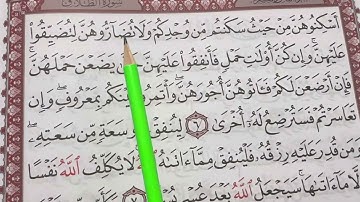 سُورَةُ الطَّلَاقِ
أَسْكِنُوهُنَّ مِنْ حَيْثُ سَكَنتُم مِّن وُجْدِكُمْ وَلَا تُضَآرُّوهُنَّ لِتُضَيِّقُوا۟
عَلَيْهِنَّ ۚ وَإِن كُنَّ أُو۟لَٰتِ حَمْلٍ فَأَنفِقُوا۟ عَلَيْهِنَّ حَتَّىٰ يَضَعْنَ حَمْلَهُنَّ ۚ
فَإِنْ أَرْضَعْنَ لَكُمْ فَـَٔاتُوهُنَّ أُجُورَهُنَّ ۖ وَأْتَمِرُوا۟ بَيْنَكُم بِمَعْرُوفٍ ۖ وَإِن
تَعَاسَرْتُمْ فَسَتُرْضِعُ لَهُۥٓ أُخْرَىٰ ٦ لِيُنفِقْ ذُو سَعَةٍ مِّن سَعَتِهِۦ ۖ
وَمَن قُدِرَ عَلَيْهِ رِزْقُهُۥ فَلْيُنفِقْ مِمَّآ ءَاتَىٰهُ ٱللَّهُ ۚ لَا يُكَلِّفُ ٱللَّهُ نَفْسًا
إِلَّا مَآ ءَاتَىٰهَا ۚ سَيَجْعَلُ ٱللَّهُ بَعْدَ عُسْرٍ يُسْرًا ٧